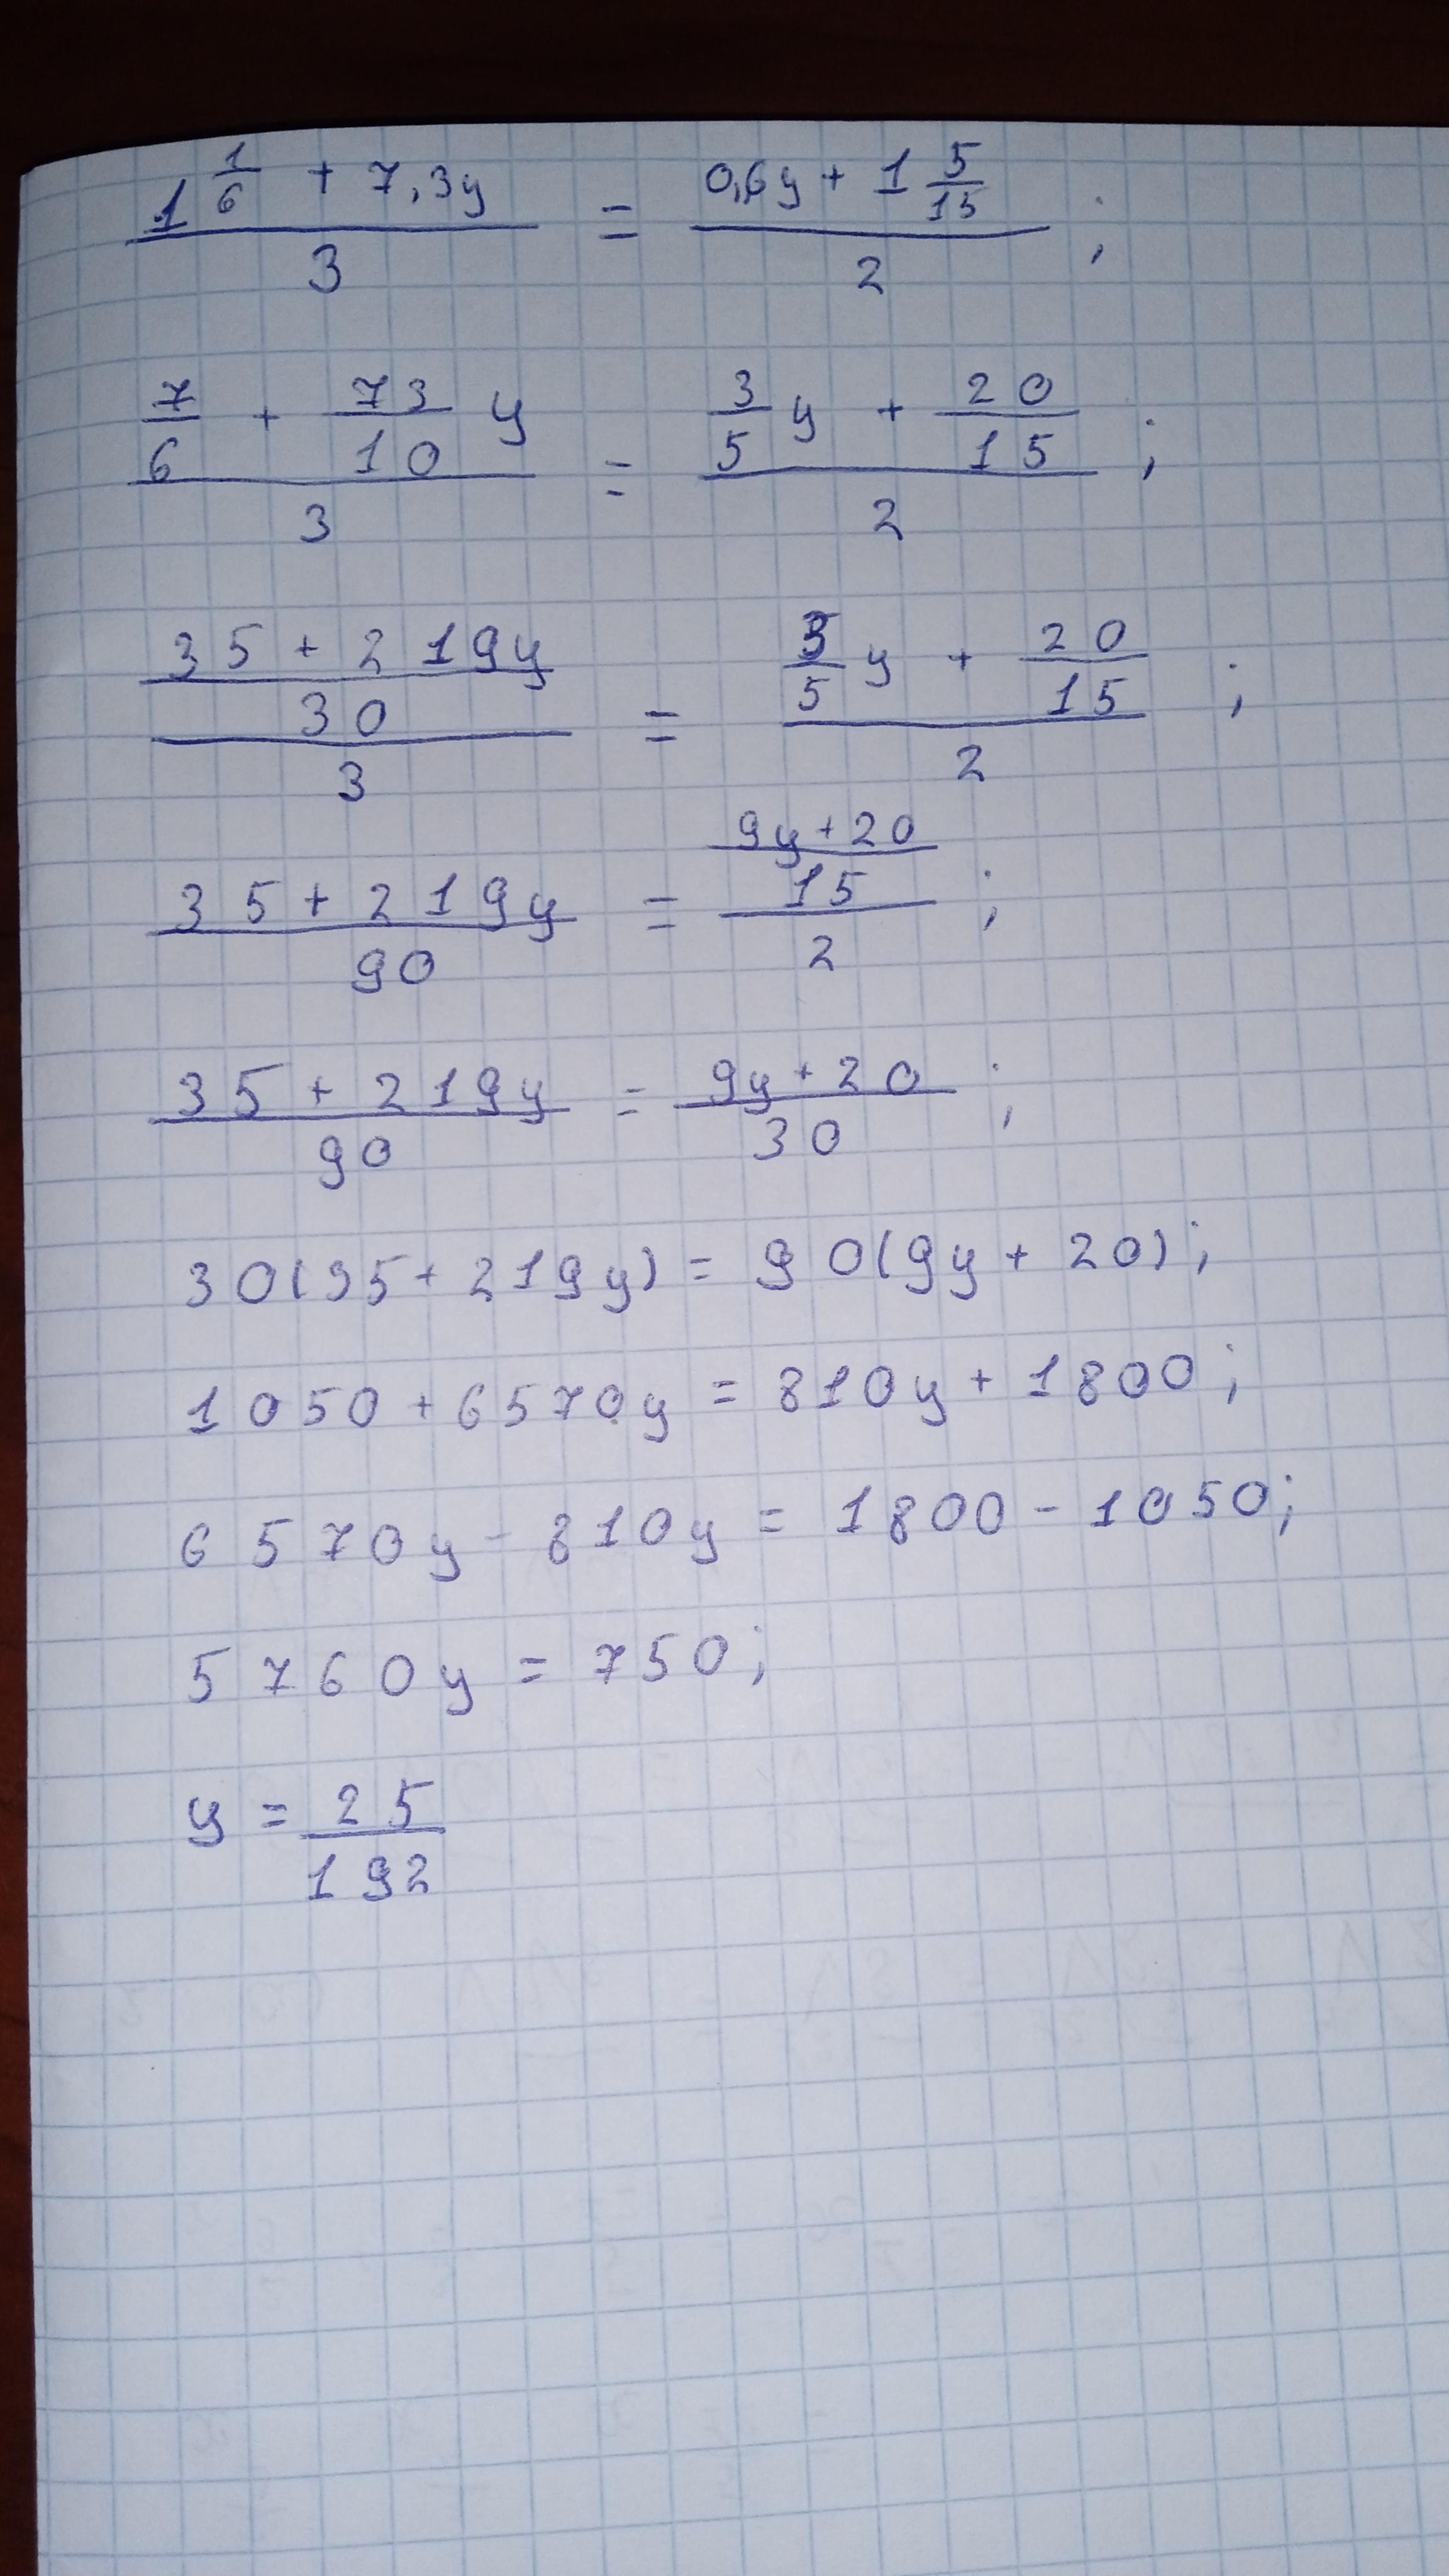 (1 1/6 + 7,3y)/3 = (0,6y + 1 5/15)/2 ;
(7/6 + 73/10 y)/3 = (3/5 y + 20/15)/2 ;
((35 + 219y)/30)/3 = (3/5 y + 20/15)/2 ;
(35 + 219y)/90 = ((9y + 20)/15)/2 ;
(35 + 219y)/90 = (9y + 20)/30 ;
30(35 + 219y) = 90(9y + 20);
1050 + 6570y = 810y + 1800;
6570y - 810y = 1800 - 1050;
5760y = 750;
y = 25/192